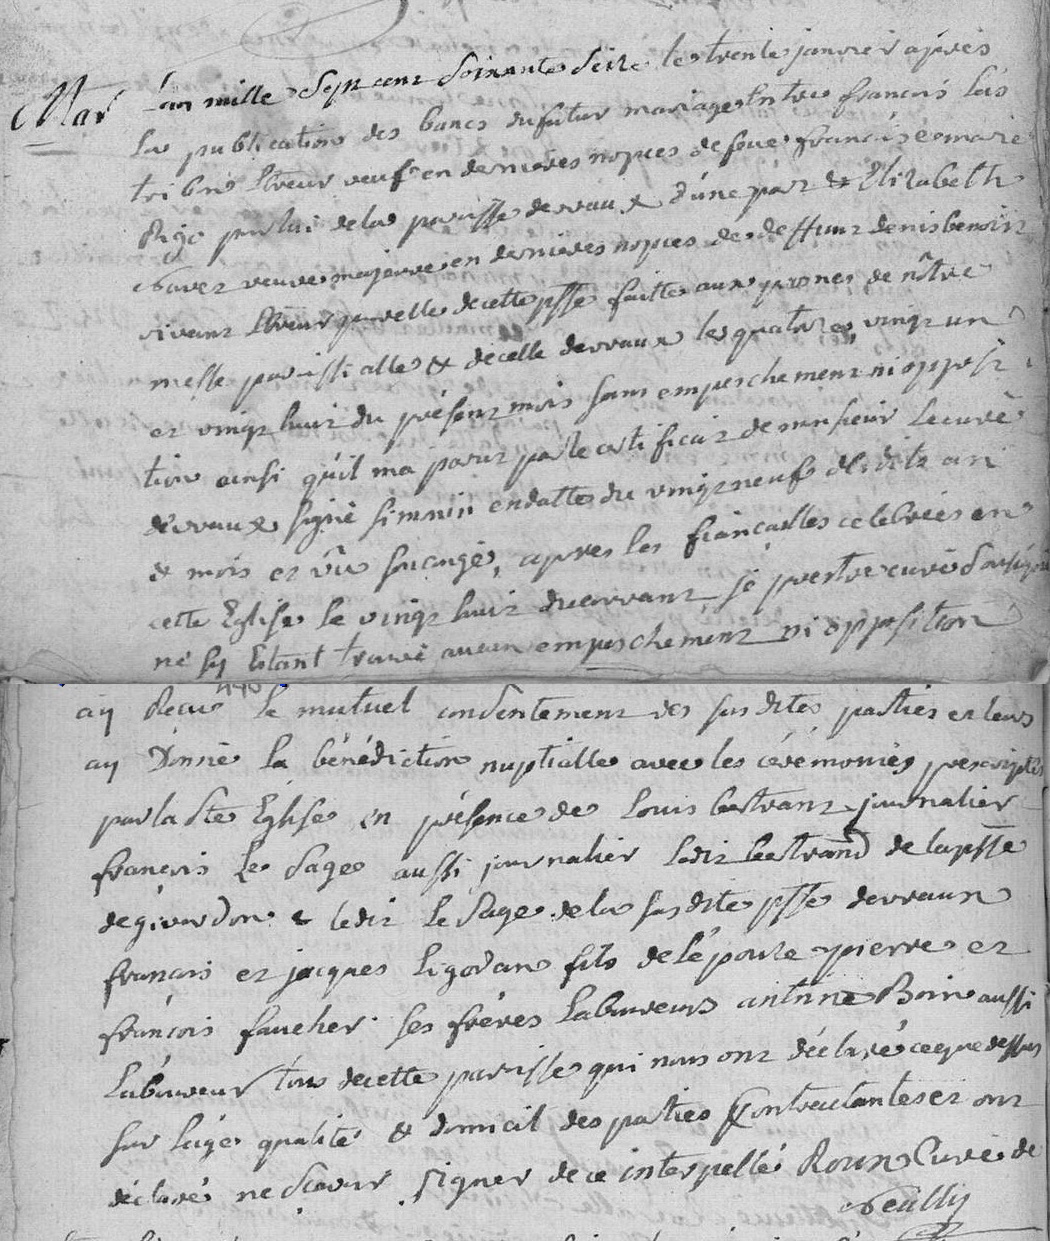 Mar
L'an mille sept cent soixante seize le trente janvier après
la publication des bancs du futur mariage entre françois
veuf en dernieres nopces de feue françoise marie
par lui de la paroisse dervaux d'une part & Elizabeth
veuve majeure en dernieres nopces de deffunt denis benoist
vivant elle de cette psse faitte aux prones de nôtre
messe paroissialle & de celle dervaux les quatorze, vingt un
et vingt huit du présent mois sans empeschement ni opposi
tion ainsi qu'il m'a parut par le certificat de monsieur le curé
dervaux signé simnin en datte du vingt neuf desdits an
& mois et vûe apres les fiancailles celebrées en
cette Eglise le vingt huit du courant je prestre curé
ne sy Estant trouvé aucun empeschement ni opposition
ay Recue le mutuel consentement des sus dites parties et leurs
ay Donné la bénédiction nuptialle avec les cérémonies prescriptes
par la Ste Eglise en présence de Louis bertrant journalier
françois le Sage aussi journalier ledit bertrand de la psse
de givardon & ledit le Sage de la sus dite psse dervaux
françois et jacques ligodan fils de l'épouse pierre et
françois faucher ses frères Laboureurs antoine Boin aussi
Laboureur tous de cette paroisse qui nous ont déclaré ce que dessus
sur l'âge qualité & domicil des parties contractantes et ont
déclaré ne scavoir signer de ce interpellé Roux Curé de
Neuilly